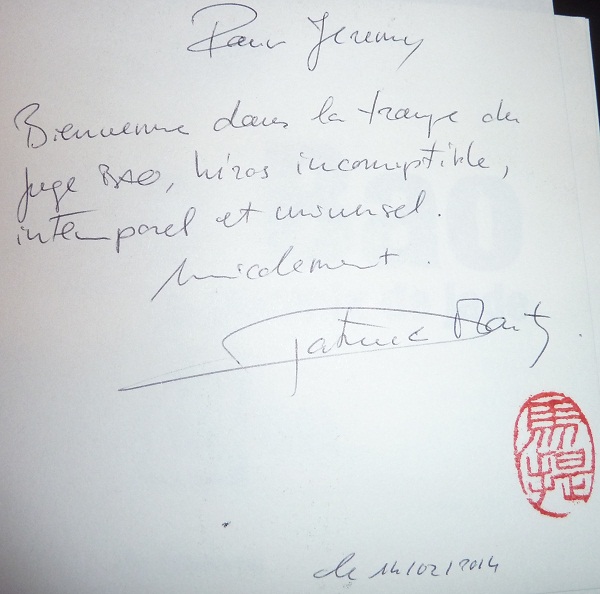 Pour Jeremy
Bienvenue dans la du
Juge BAO, héros incorruptible,
intemporel et universel.
Amicalement.
Patrick Marty.
馬
le 14/02/2014